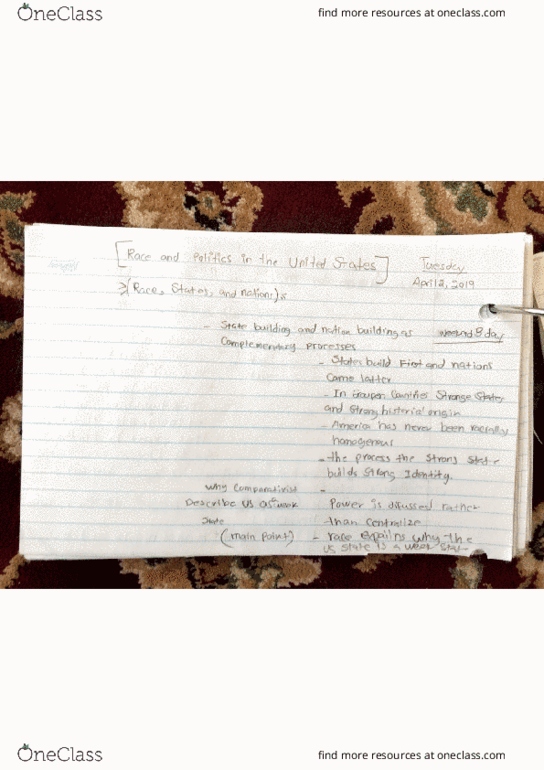 OneClass
find more resources at oneclass.com
[Race and Politics in the United States]
Tuesday
April 2, 2019
(Race, States, and nation)
- State building and nation building as
Complementary processes
8 day
- States build First and nations
Came latter
- In Countries Strong States
and Strong historial origin
- America has never been racially
homogenous
- the process the Strong State
builds Strong Identity.
Why Comparativist
Describe US as weak
State
(main point)
-
Power is disussed rather
than Centralize
- race expalins why the
US State is a weak State
OneClass
find more resources at oneclass.com